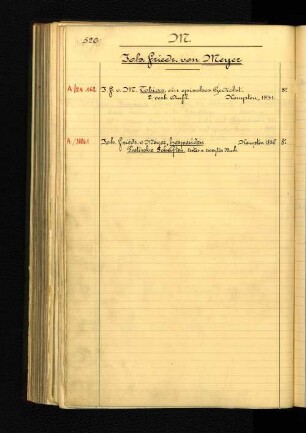 520.
M.
Joh. Friedr. von Meyer
A/24 162 J. F. v. M. Tobias, ein episches Gedicht. 8°.
2. verb. Aufl. Kempten, 1831.
Joh. Friedr. v. Meyer, Hesperiden. Kempten 1836 8°.
Poetische Schriften, erstes u. zweites Buch.